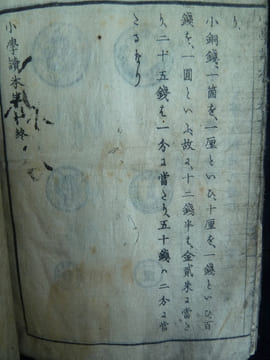 り、
小銅錢、一箇を、一厘といひ、十厘を、一錢といひ、百
錢を、一圓といふ、故に、十二錢半も、金貳朱に當さ
り、二十五錢を、一分に當さり、五十錢ハ、二分に當
さるなり
小學讀本